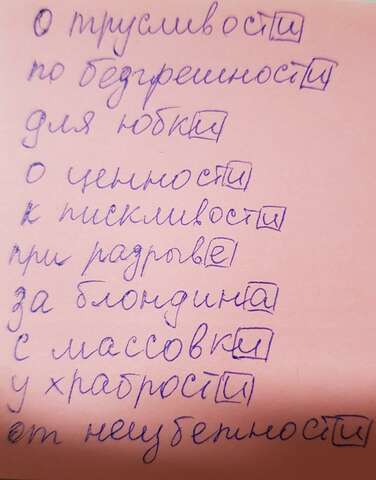 о трусливости
по безгрешности
для юбки
о ценности
к пискливости
при разрыве
за блондина
с массовки
у храбрости
от неизбежности